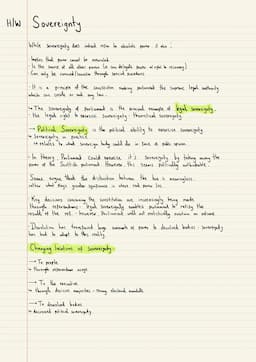 H/W Sovereignty
While sovereignty does indeed refer to absolute power, it also:
Implies that power cannot be overruled
- Is the source of all other powers (so can delegate power w/ right to recovery)
- Can only be removed/transfer through special procedures
- It is a principle of the constitution making parliament the supreme legal authority
which can create or end any law.
→ The sovereignty of parliament is the principal example of legal sovereignty.
- The legal right to exercise sovereignty - theoretical sovereignty.
→ Political Sovereignty is the political ability to exercise sovereignty
→ Sovereignty in practice
↳ relates to what sovereign body could do in face of public opinion.
- In theory, Parliament could exercise it's sovereignty by taking away the
power of the Scottish parliament. However, this seems politically unthinkable.
Some argue that the distinction between the two is meaningless -
rather what says greater significance is where real power lies.
- Key decisions concerning the constitution are increasingly being made
through referendums - legal sovereignty enables parliament to reject the
result of the ref. - however, Parliament will not realistically overturn an outcome
- Devolution has transferred large amounts of power to devolved bodies - sovereignty
has had to adapt to this reality.
Changing locations of sovereignty:
→ To people
- Through referendum usage
→ To the executive
- through decisive majorities - strong electoral mandate
→ To devolved bodies
- Increased political sovereignty